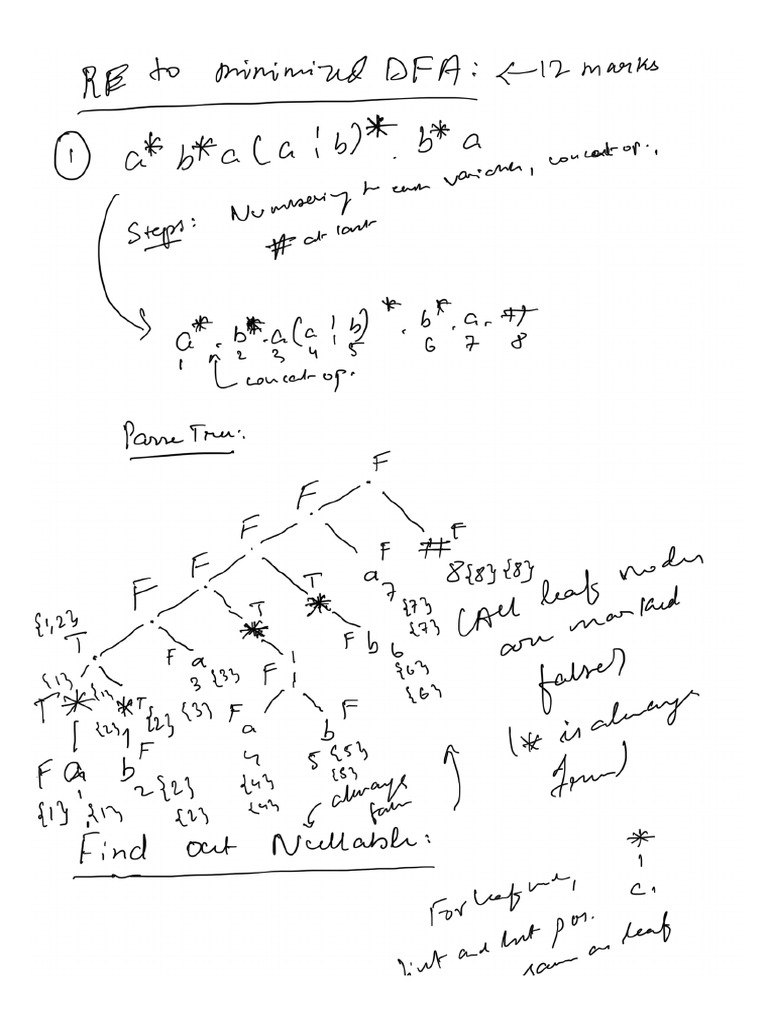 RE to minimized DFA: ← 12 marks
① a* b* a (a | b)* . b* a
Steps: Numbering to each variables, concat op.,
# at last
a* . b* . a (a | b)* . b* . a . #
1 2 3 4 5 6 7 8
concat op.
Parse Tree:
F
F
F
F F F #
F T a 8 {8} {8}
F T * 7
{1,2} * F b {7}
T F a F | 6 {7}
{1} {1} 3 {3} {6}
T * * T {3} F F {6}
{2} {2} a b
F a b F 4 5 {5}
1 2 {2} {4} {5}
{1} {1} {2} {4}
(All leaf nodes
are marked
false)
(* is always
True)
always
Find out Nullable:
*
|
c.
For leaf
first and last pos.
same as leaf